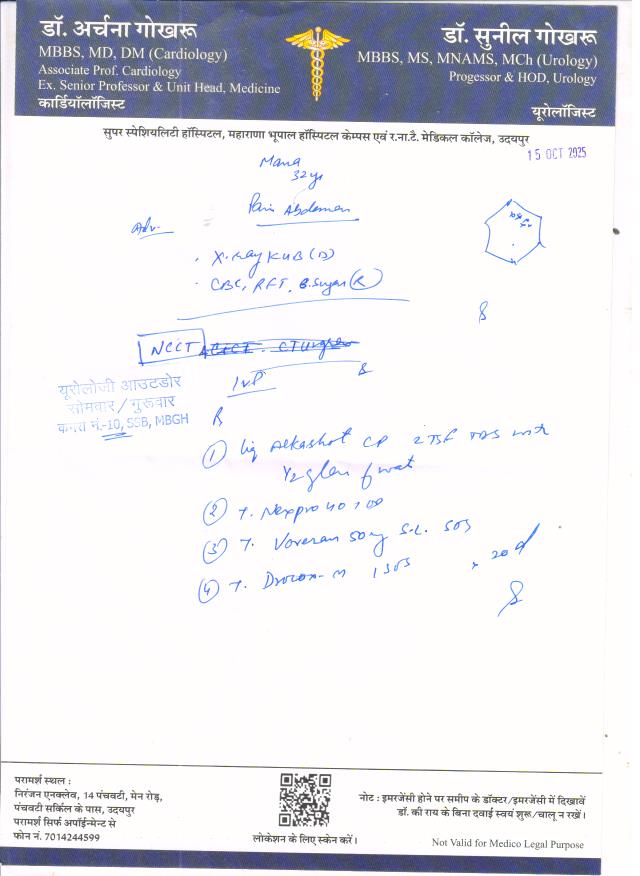 डॉ. अर्चना गोखरू
MBBS, MD, DM (Cardiology)
Associate Prof. Cardiology
Ex. Senior Professor & Unit Head, Medicine
कार्डियोलॉजिस्ट
डॉ. सुनील गोखरू
MBBS, MS, MNAMS, MCh (Urology)
Progessor & HOD, Urology
यूरोलॉजिस्ट
सुपर स्पेशियलिटी हॉस्पिटल, महाराणा भूपाल हॉस्पिटल कैम्पस एवं र.ना.टै. मेडिकल कॉलेज, उदयपुर
15 OCT 2025
32 yr
Pain Abdomen
Adv.
X-ray KUB (D)
CBC, RFT, B. Sugar (R)
NCCT
IVP
यूरोलोजी आउटडोर
सोमवार / गुरूवार
कमरा नं.-10, SSB, MBGH
R
1 liq Alkashot CP 2 TSF TDS with
1/2 glass of wat
2 T. Nexpro 40 1 OD
3 T. Voveran 50 mg S.L. SOS
4 T. Drotin-M 1 SOS x 20 d
परामर्श स्थल :
निरंजन एनक्लेव, 14 पंचवटी, मेन रोड़,
पंचवटी सर्किल के पास, उदयपुर
परामर्श सिर्फ अपॉईन्मेन्ट से
फोन नं. 7014244599
लोकेशन के लिए स्केन करें।
नोट : इमरजेंसी होने पर समीप के डॉक्टर/इमरजेंसी में दिखावें
डॉ. की राय के बिना दवाई स्वयं शुरू/चालू न रखें।
Not Valid for Medico Legal Purpose